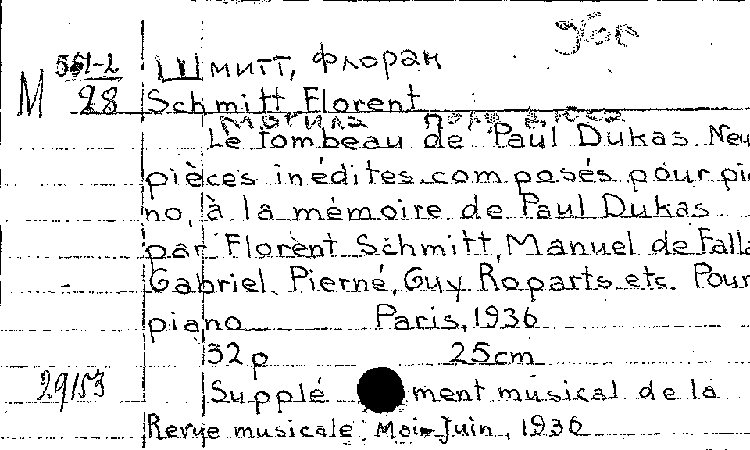 M 551-2
28
Шмитт, Флоран
Schmitt Florent
Могила Поля Дюка
Le tombeau de Paul Dukas. Neu
pièces inédites composés pour pia
no, à la mémoire de Paul Dukas
par Florent Schmitt, Manuel de Falla
Gabriel Pierné, Guy Roparts etc. Pour
piano Paris, 1936
32 p 25cm
29/53 Supplément musical de la
Revue musicale, Mai-Juin, 1936